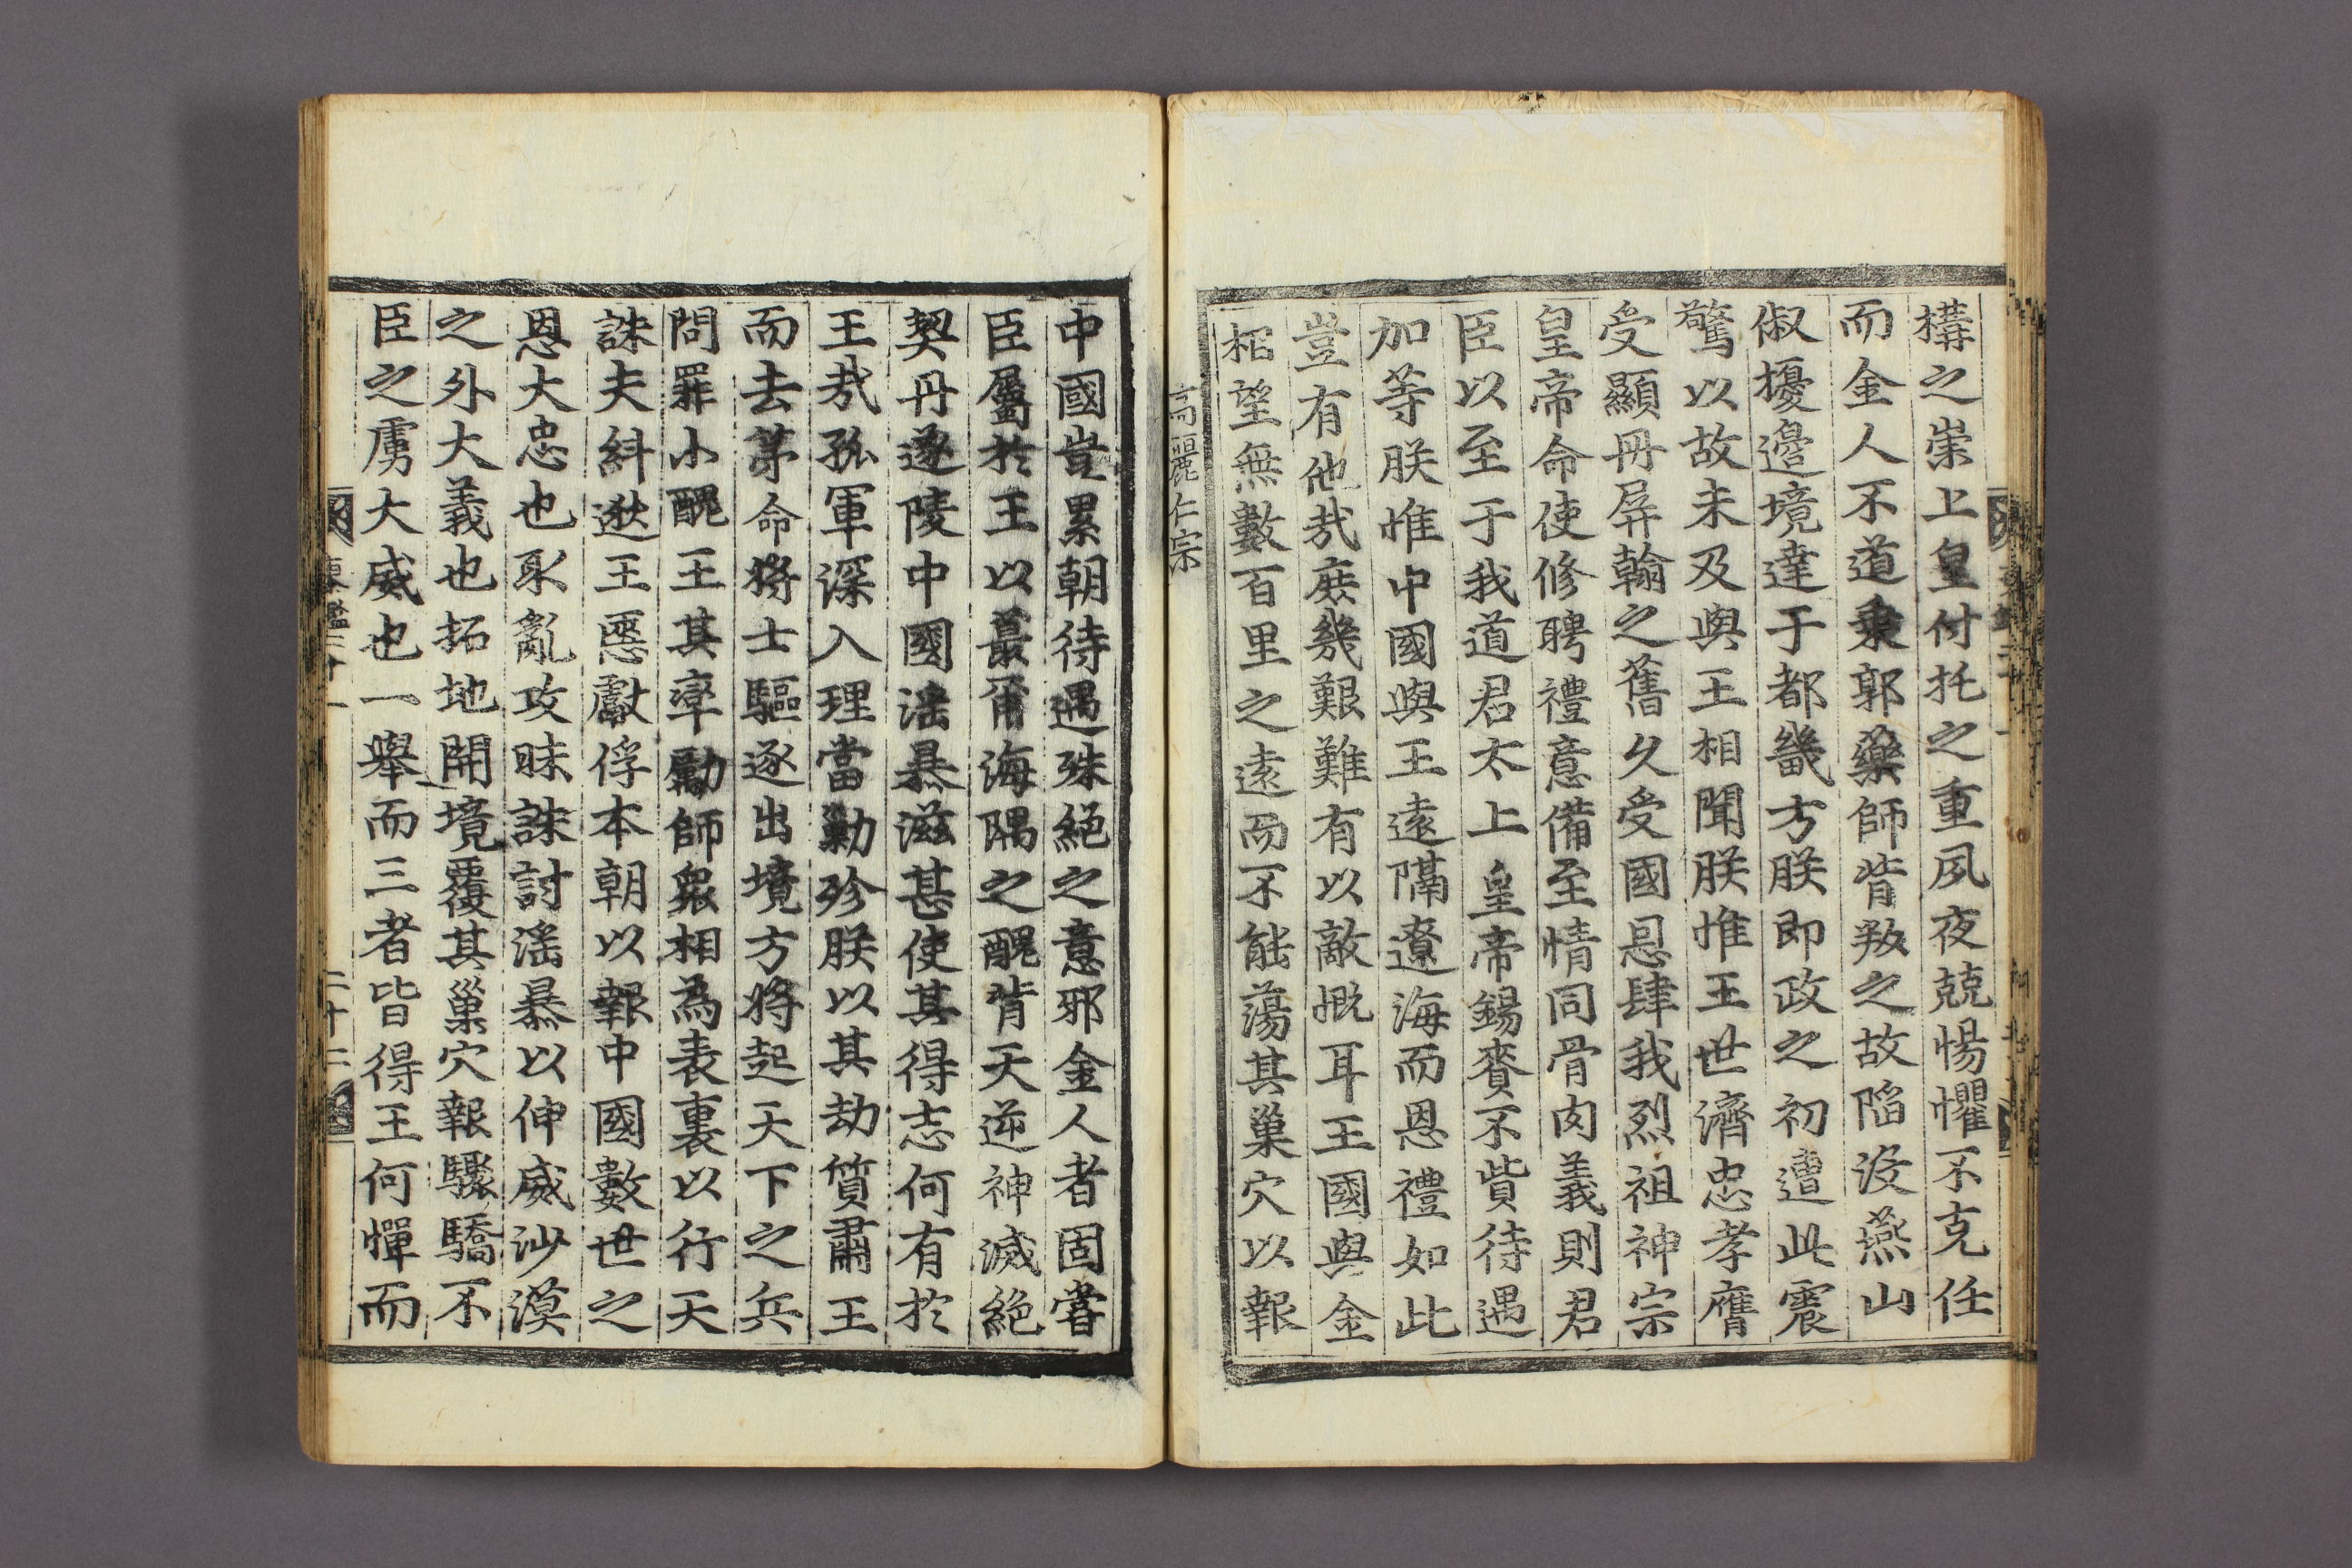 構之崇上皇付托之重夙夜兢惕懼不克任
而金人不道乘郭藥師背叛之故陷沒燕山
俶擾邉境達于都畿方朕即政之初遭此震
驚以故未及與王相聞朕惟王世濟忠孝膺
受顯冊屏翰之舊久受國恩肆我烈祖神宗
皇帝命使修聘禮意備至情同骨肉義則君
臣以至于我道君太上皇帝錫賚不貲待遇
加等朕惟中國與王遠隔遼海而恩禮如此
豈有他哉庶幾艱難有以敵愾耳王國與金
相望無數百里之遠而不能蕩其巢穴以報
高麗仁宗
中國豈累朝待遇殊絕之意邪金人者固甞
臣屬於王以蕞甭海隅之醜背天逆神滅絕
契丹遂陵中國滛暴滋甚使其得志何有於
王㢤孤軍深入理當勦殄朕以其劫質肅王
而去苐命將士驅逐出境方將起天下之兵
問罪小醜王其率勵師衆相為表裏以行天
誅夫糾逖王慝獻俘本朝以報中國數世之
恩大忠也取亂攻昧誅討滛暴以伸威沙漠
之外大義也拓地開境覆其巢穴報驟驕不
臣之虜大威也一舉而三者皆得王何憚而
東鑑二十一
二十二